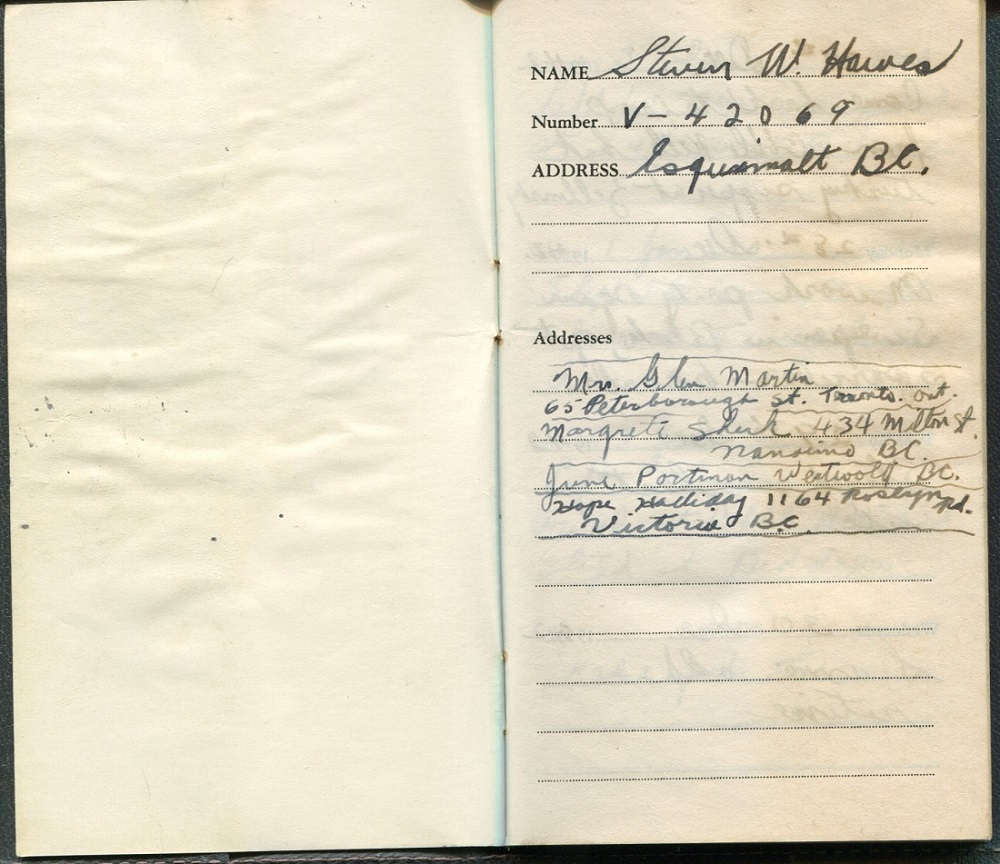 NAME Steven W. Hawes
Number V-42069
ADDRESS Esquimalt BC.
Addresses
Mr. Glen Martin
65 Peterborough St. Toronto. Ont.
Margrete Shirk 434 Milton St.
Nanaimo BC.
June Portman Westwold BC.
Hope Halliday 1164 Roslyn Rd.
Victoria BC.